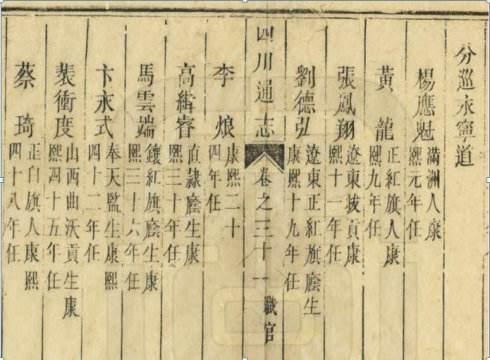 分巡永寧道
楊應魁 滿洲人康
熙元年任
黃龍 正紅旗人康
熙九年任
張鳳翔 遼東拔貢康
熙十一年任
劉德弘 遼東正紅旗廕生
康熙十九年任
四川通志 卷之三十一 職官
李烺 康熙二十
四年任
高緝睿 直隸廕生康
熙三十年任
馬雲端 鑲紅旗廕生康
熙三十六年任
卞永式 奉天監生康熙
四十二年任
裴衝度 山西曲沃貢生康
熙四十五年任
蔡琦 正白旗人康熙
四十八年任